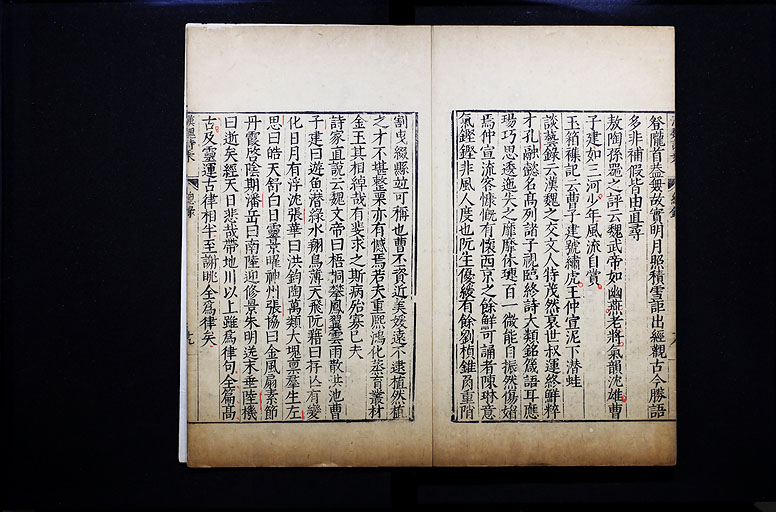 登隴首㳟無故實明月照積雪詎出經觀古今勝語
多非補假皆由直尋
敖陶孫器之評云魏武帝如幽燕老將氣韻沈雄曹
子建如三河少年風流自賞
玉箱襍記云曹子建號繡虎王仲宣泥下潛蛙
談藝錄云漢魏之交文人特茂然衰世叔運終鮮粹
才孔融懿名高列諸子視臨終詩大類銘箴語耳應
瑒巧思逶迤失之靡靡休璉百一微能自振然傷媚
焉仲宣流客慷慨有懷西京之餘鮮可誦者陳琳意
氣鏗鏗非風人度也阮生優緩有餘劉楨錐角重陗
割曳綴縣竝可稱也曹丕資近美媛遠不逮植然植
之才不堪整栗亦有憾焉若夫重熙鴻化烝育叢材
金玉其相綽哉有斐求之斯病殆寡已夫
詩家直說云魏文帝曰梧桐攀鳳翼雲雨散洪池曹
子建曰遊魚潛綠水翔鳥薄天飛阮籍曰存亡有變
化日月有浮沈張華曰洪鈞陶萬類大塊稟羣生左
思曰皓天舒白日靈景曜神州張協曰金風扇素節
丹霞啓陰期潘岳曰南陸迎修景朱明送末垂陸機
曰逝矣經天日悲哉帶地川以上雖爲律句全篇高
古及靈運古律相半至謝朓全爲律矣
總錄
九